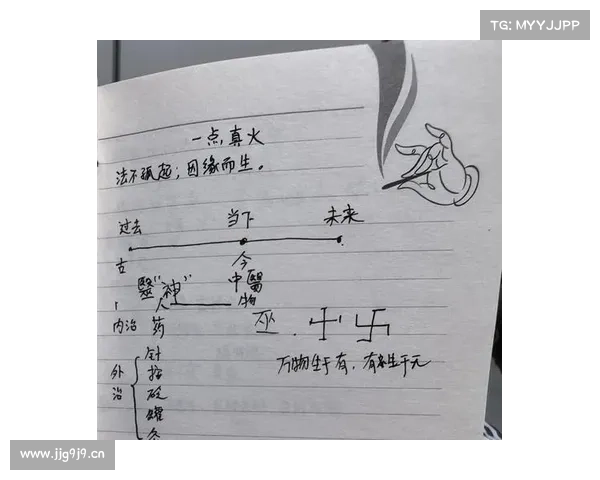 TG: MYYJJPP
一点真火
法不孤起；因缘而生。
过去 当下 未来
古 今
毉"神" 中醫
人 物
内治 药 巫 卐
万物生于有，有生于无
外治 针
砭
罐
www.jjg9j9.cn